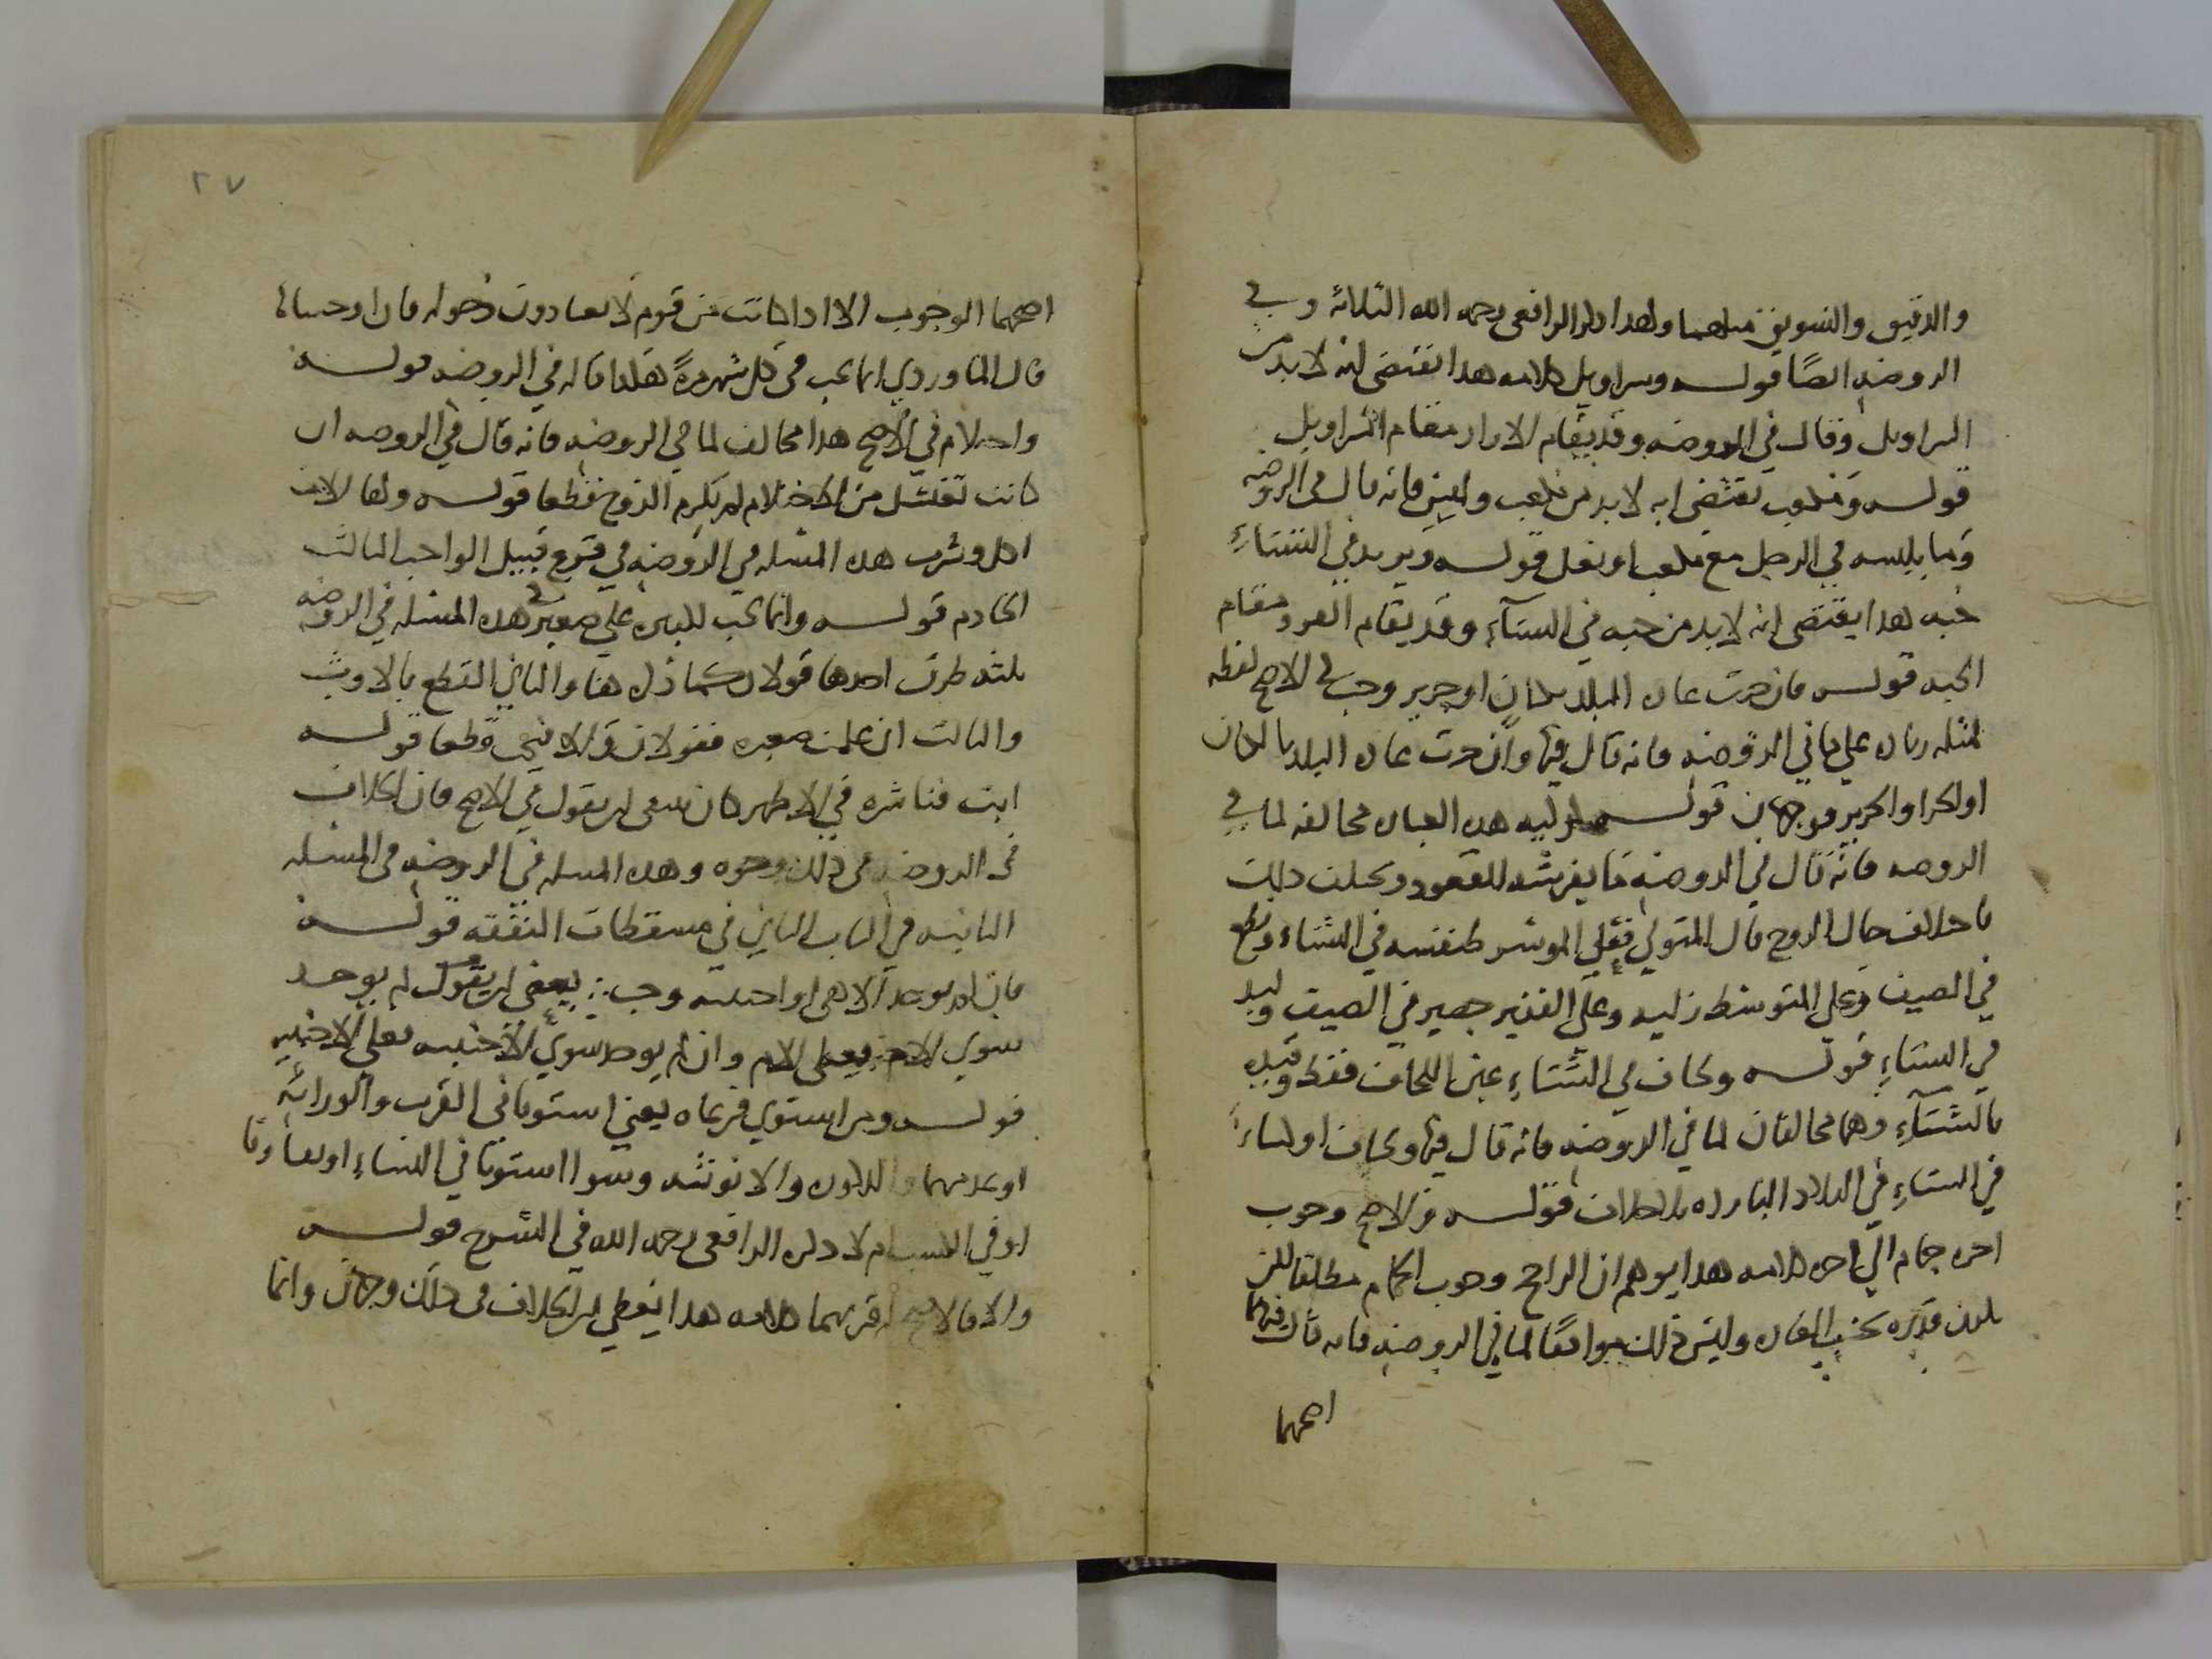 والدقيق والسويق مثلهما ولهذا ذكر الرافعي رحمه الله الثلاثة وفي
الروضة ايضًا قوله وسراويل كلامه هذا يقتضي انه لا بد من
السراويل وقال في الروضة وقد يقام الازار مقام السراويل
قوله ومكعب يقتضي انه لا بد من مكعب وليس فانه قال في الروضة
وما يلبسه في الرجل مع مكعب او نعل قوله ويزيد في الشتاء
جبة هذا يقتضي انه لا بد من جبة في الشتآء وقد يقام الفرو مقام
الجبة قوله فان جرت عادة البلد بكتان او حرير وجب في الاصح لفظه
لمثله زيادة على ما في الروضة فانه قال فيها وان جرت عادة البلد بالكتان
او الخز او الحرير فوجهان قوله او لبد هذه العبارة مخالفة لما في
الروضة فانه قال في الروضة ما يفرشه للقعود ويختلف ذلك
باختلاف حال الزوج قال المتولي فعلى الموسر طنفسة في الشتاء ونطع
في الصيف وعلى المتوسط زلية وعلى الفقير حصير في الصيف ولبد
في الشتاءِ قوله ولحاف في الشتاءِ عين اللحاف فقط وقيده
بالشتآءِ وهما مخالفان لما في الروضة فانه قال فيها ولحاف او كساءً
في الشتاءِ في البلاد الباردة قوله والاصح وجوب
اجرة حمام الى اخر كلامه هذا يوهم ان الراجح وجوب الحمام مطلقا لكن
يكون قدره بحسب العادة وليس ذلك موافقًا لما في الروضة فانه قال فيها
اصحهما
٢٧
اصحهما الوجوب الا اذا كانت من قوم لا يعتادون دخوله فان اوجبنا
قال الماوردي انما يجب في كل شهر مرةً هكذا قاله في الروضة قوله
واحتلام في الاصح هذا مخالف لما في الروضة فانه قال في الروضة ان
كانت تغتسل من الاحتلام لم يلزم الزوج قطعا قوله ولها آلات
اكل وشرب هذه المسئلة في الروضة في فرع قبيل الواجب الثالث
الخادم قوله وانما تجب لكبيرة على صغير هذه المسئلة في الروضة في
ثلثة طرق احدها قولان كما ذكر هنا والثاني القطع بالاول
والثالث ان علمت صغره فقولان والا فتجب قطعا قوله
ابت ناشزة في الاظهر كان ينبغي ان يقول في الاصح فان الخلاف
في الروضة في ذلك وجوه وهذه المسئلة في الروضة في المسئلة
الثانية في الباب الثاني في مسقطات النفقة قوله
فان لم يوجد الا هي او اجنبية وجب يعني ان يقول لم يوجد
سوي الام فعلى الام وان لم يوجد سوي الاجنبية فعلى الاجنبية
قوله ومن استوي فرعاه يعني استويا في القرب والوراثة
او عدمهما والذكورة والانوثة وسوا استويا في اليسار او تفاوتا
او في الكسب ام لا ذكره الرافعي رحمه الله في الشرح قوله
والا فالاصح اقربهما كلامه هذا يعطي ان الخلاف في ذلك وجهان وانما